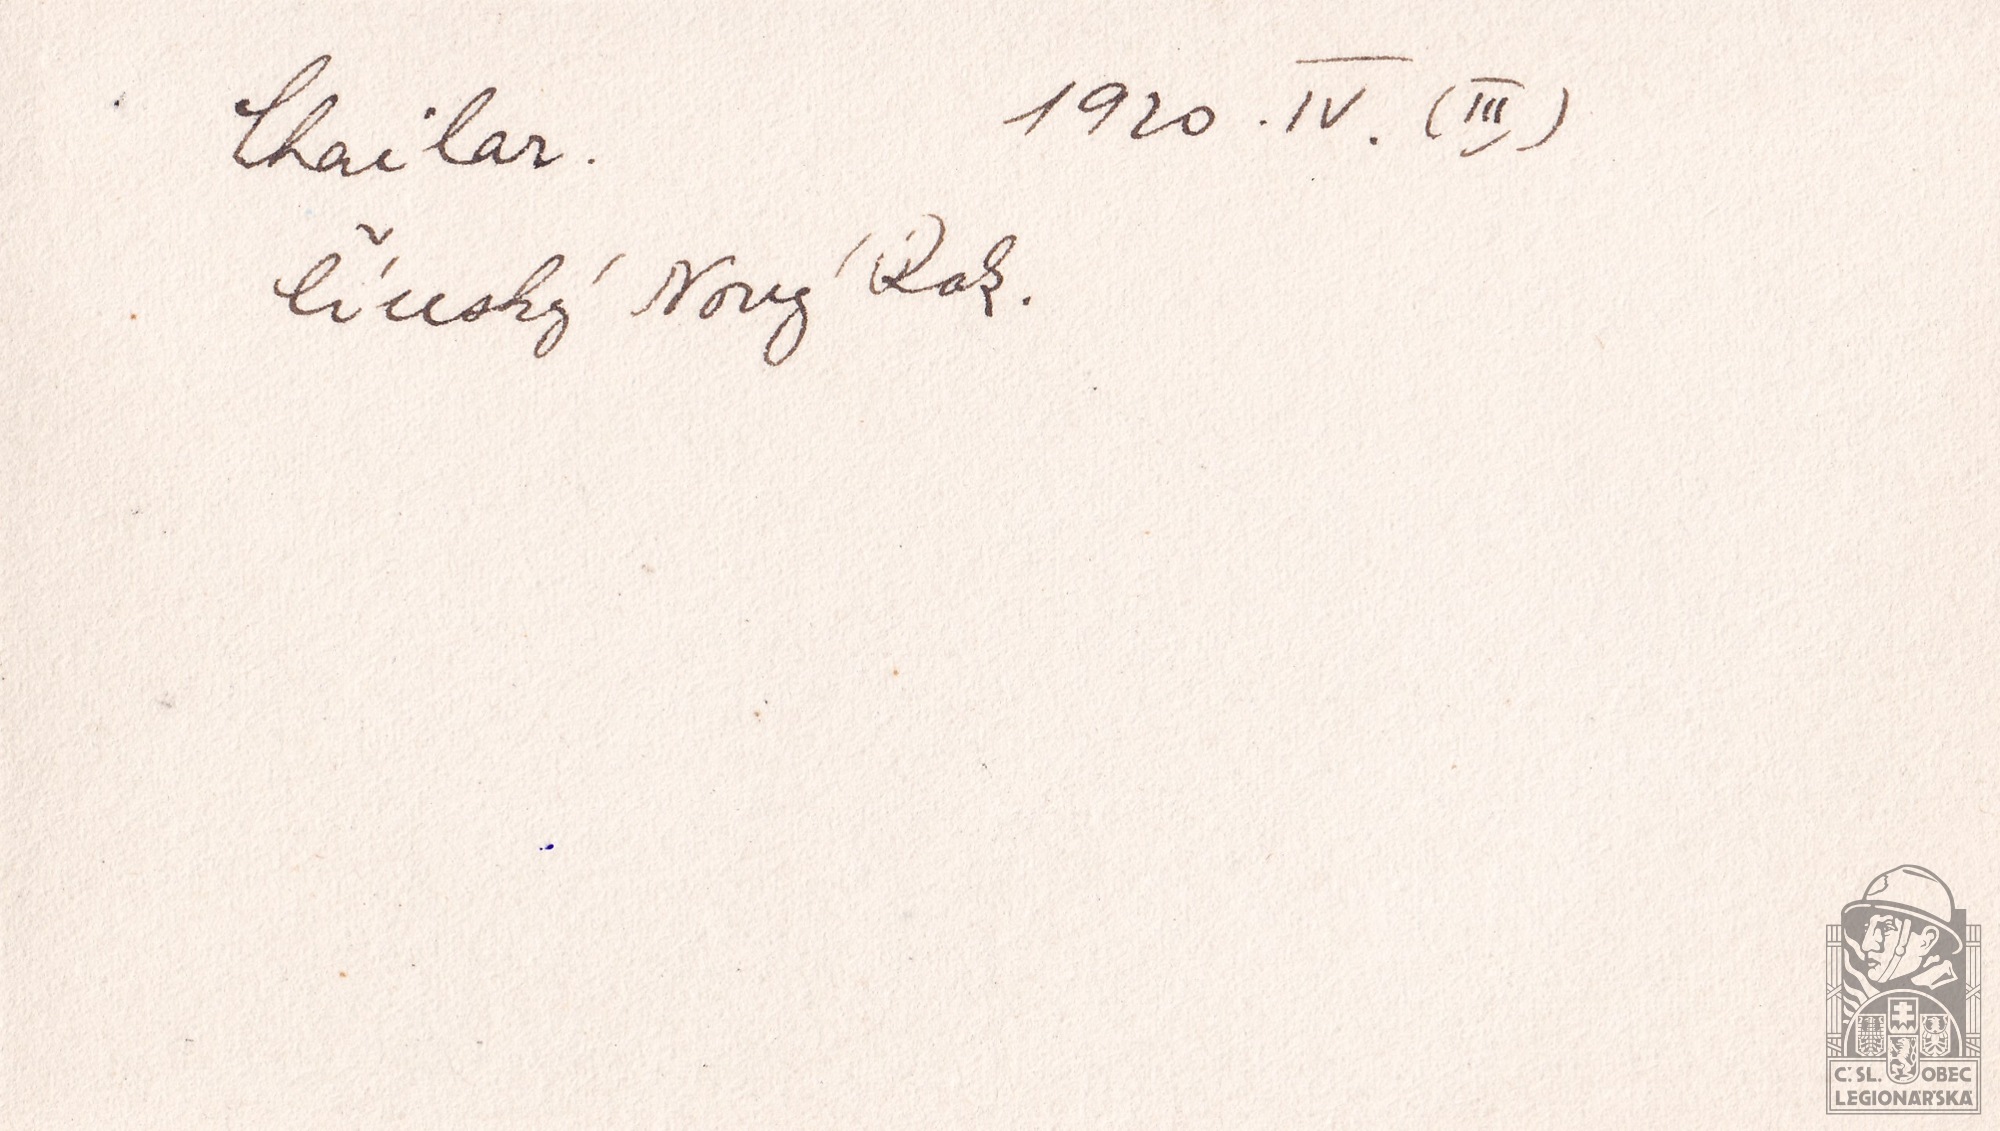 Chailar. 1920. IV. (III)
Čínský Nový Rok.
Č. SL. OBEC
LEGIONÁŘSKÁ